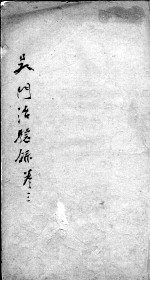 吳門治驗錄 卷三